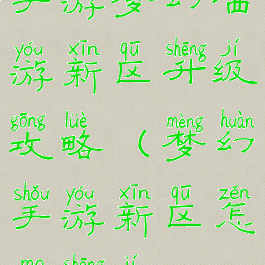 手游梦幻西
yóu xīn qū shēng jí
游新区升级
gōng lüè mèng huàn
攻略（梦幻
shǒu yóu xīn qū zěn
手游新区怎